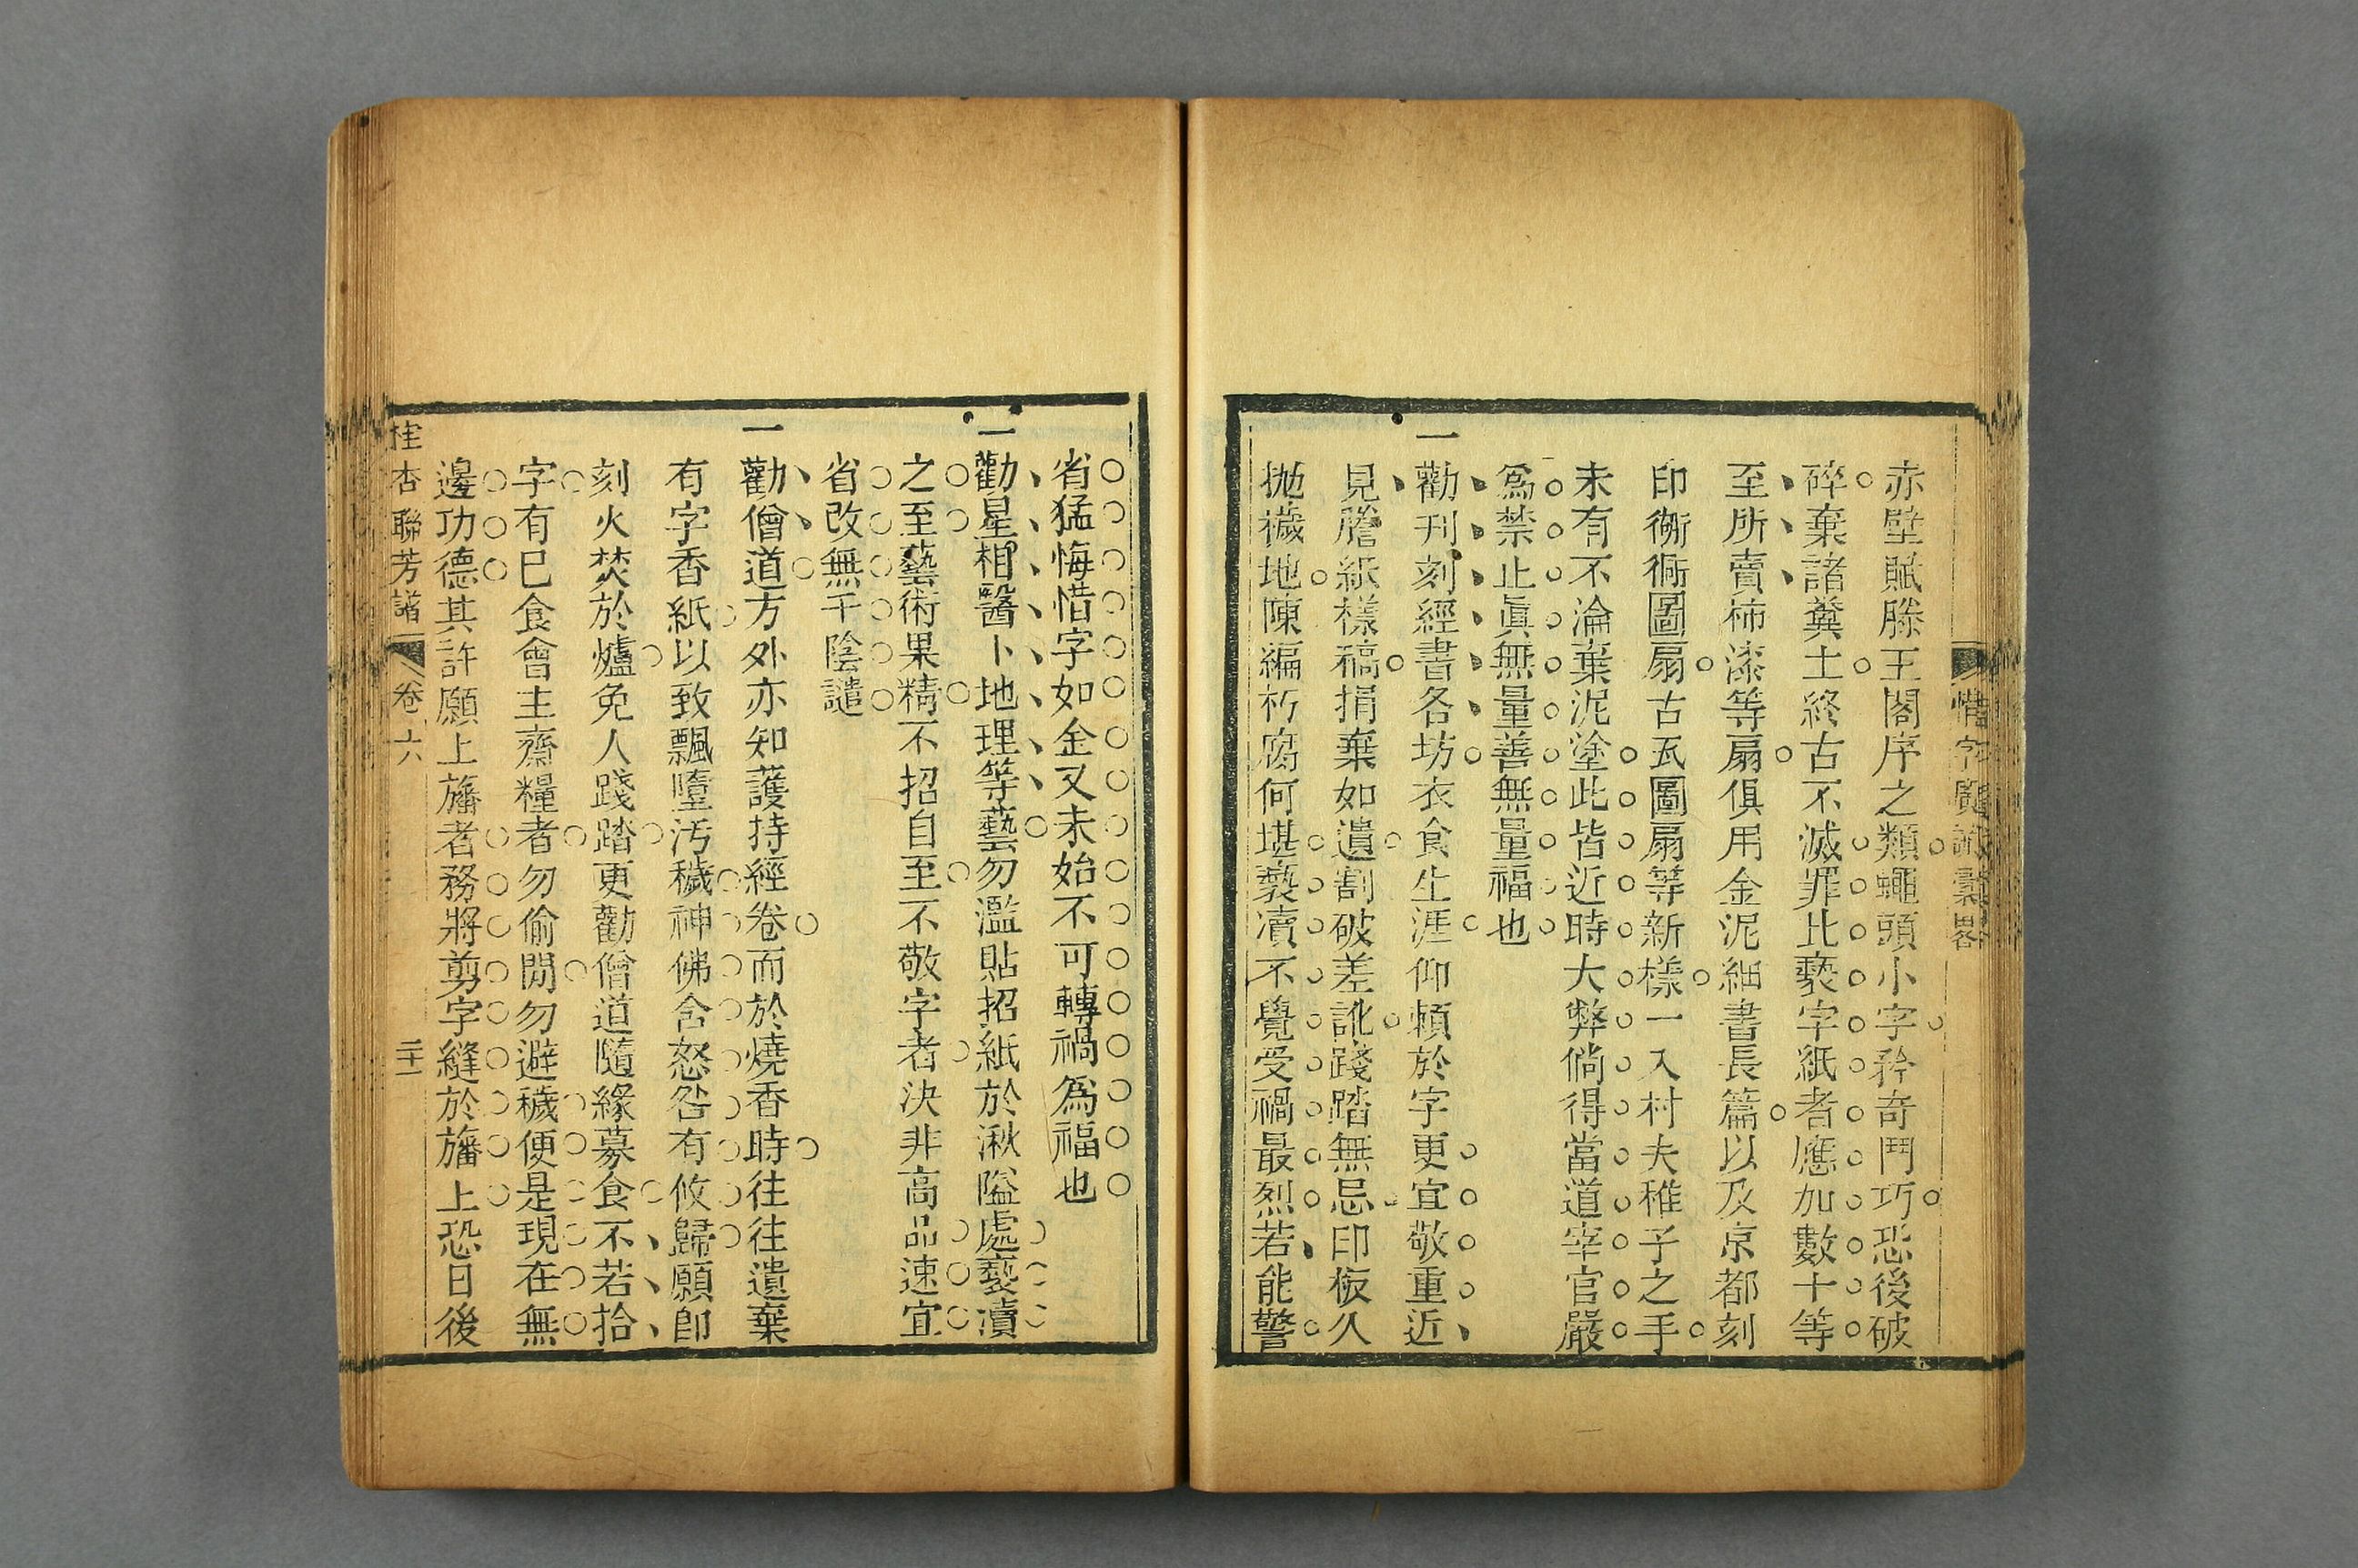 惜字
赤壁賦滕王閣序之類蠅頭小字矜奇鬥巧恐後破
碎棄諸糞土終古不滅罪比褻字紙者應加數十等
至所賣柿漆等扇俱用金泥細書長篇以及京都刻
印衚衕圖扇古瓦圖扇等新樣一入村夫稚子之手
未有不淪棄泥塗此皆近時大弊倘得當道宰官嚴
爲禁止眞無量善無量福也
一勸刊刻經書各坊衣食生涯仰賴於字更宜敬重近
見謄紙樣稿捐棄如遺割破差訛踐踏無忌印板久
抛穢地陳編朽腐何堪褻凟不覺受禍最烈若能警
省猛悔惜字如金又未始不可轉禍爲福也
一勸星相醫卜地理等藝勿濫貼招紙於湫隘處褻瀆
之至藝術果精不招自至不敬字者決非高品速宜
省改無干陰譴
一勸僧道方外亦知護持經卷而於燒香時往往遺棄
有字香紙以致飄墮汚穢神佛含怒咎有攸歸願卽
刻火焚於爐免人踐踏更勸僧道隨緣募食不若拾
字有巳食會主齋糧者勿偷閒勿避穢便是現在無
邊功德其許願上旛者務將剪字縫於旛上恐日後
桂杏聯芳譜 卷六 二十一